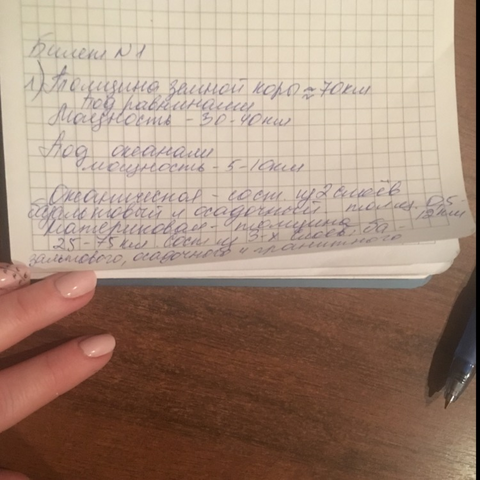 Билет №1
1) Толщина земной коры ≈ 70км
под равнинами
Мощность - 30-40км
Под океанами
мощность - 5-10км
Океаническая - сост. из 2 слоёв
базальтовый и осадочный толщ. 0,5
12км
Материковая - толщина
25-75км сост из 3-х слоев: ба-
зальтового, осадочного и гранитного